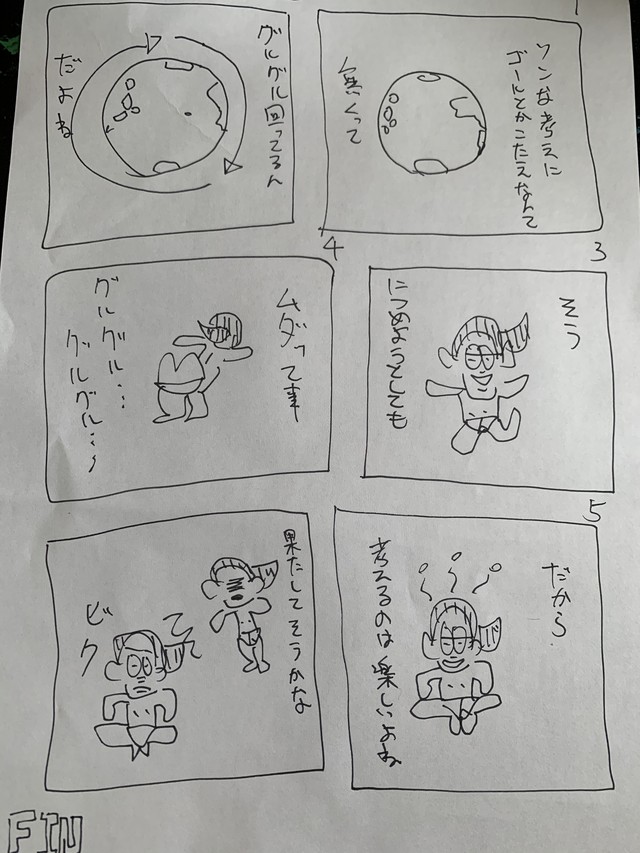 1
ソンな考えに
ゴールとかこたえなんて
無くって
グルグル回ってるん
だよね
3
そう
につめようとしても
4
ムダって事
グルグル…
グルグル…
5
だから
考えるのは楽しいよね
果たしてそうかな
ビク
FIN